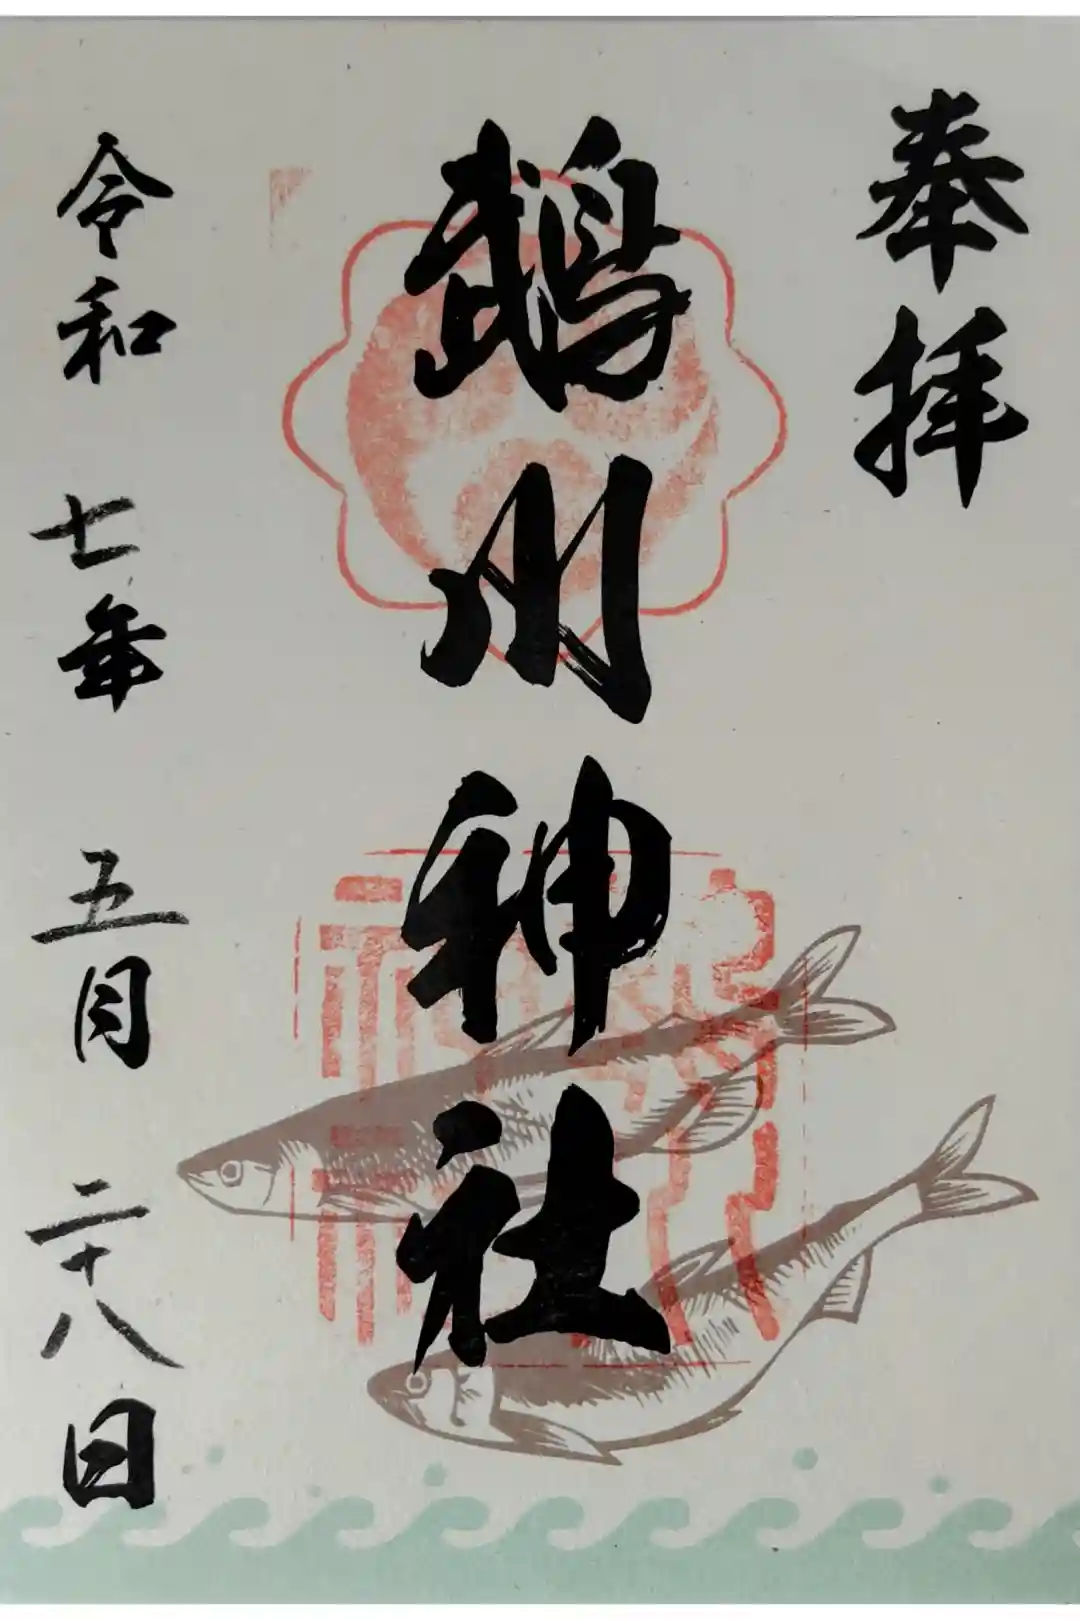 奉拝
鵡川神社
令和 七年 五月 二十八日